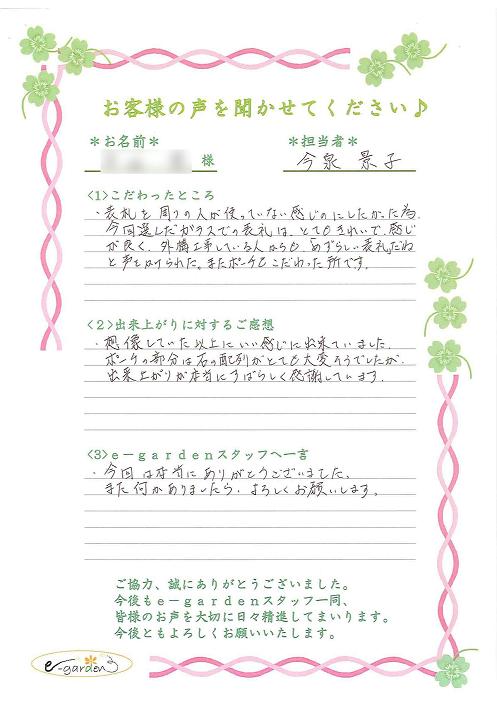 お客様の声を聞かせてください♪
＊お名前＊
＊担当者＊
様
今泉 景子
<1>こだわったところ
・表札を周りの人が使っていない感じのにしたかった為、
今回選んだガラスでの表札は、とてもきれいで、感じ
が良く、外構工事している人からも、めずらしい表札だね
と声をかけられた。またポーチもこだわった所です。
<2>出来上がりに対するご感想
・想像していた以上にいい感じに出来ていました。
ポーチの部分は石の配列がとても大変そうでしたが、
出来上がりが本当にすばらしく感謝しています。
<3>e－gardenスタッフへ一言
・今回は本当にありがとうございました。
また何かありましたら、よろしくお願いします。
ご協力、誠にありがとうございました。
今後もe－gardenスタッフ一同、
皆様のお声を大切に日々精進してまいります。
今後ともよろしくお願いいたします。
e-garden